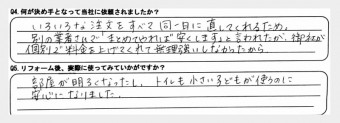 Q4. 何が決め手となって当社に依頼されましたか？
いろいろな注文をすべて同一日に直してくれるため。
別の業者さんで「まとめてやれば安くします」と言われたが、御社が
個別で料金を上げてくれて無理強いしなかったから
Q5. リフォーム後、実際に使ってみていかがですか？
部屋が明るくなったし、トイレも小さい子どもが使うのに
安心になりました。